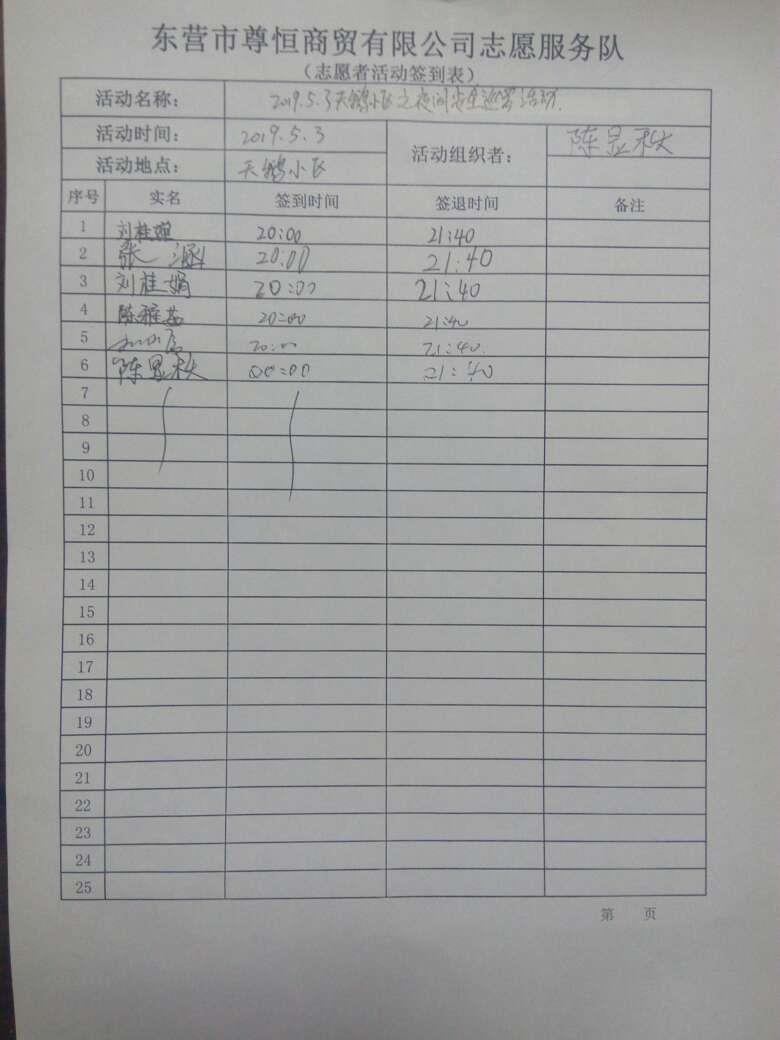 东营市尊恒商贸有限公司志愿服务队
（志愿者活动签到表）
活动名称： 2019.5.3天鹅小区之夜间安全巡逻活动.
活动时间： 2019.5.3 活动组织者： 陈显秋
活动地点： 天鹅小区
序号 实名 签到时间 签退时间 备注
1 刘桂 20:00 21:40
2 张涵 20:00 21:40
3 刘桂娟 20:00 21:40
4 陈雅茹 20:00 21:40
5 20:00 21:40.
6 陈显秋 00:00 21:40
7
8
9
10
11
12
13
14
15
16
17
18
19
20
21
22
23
24
25
第 页